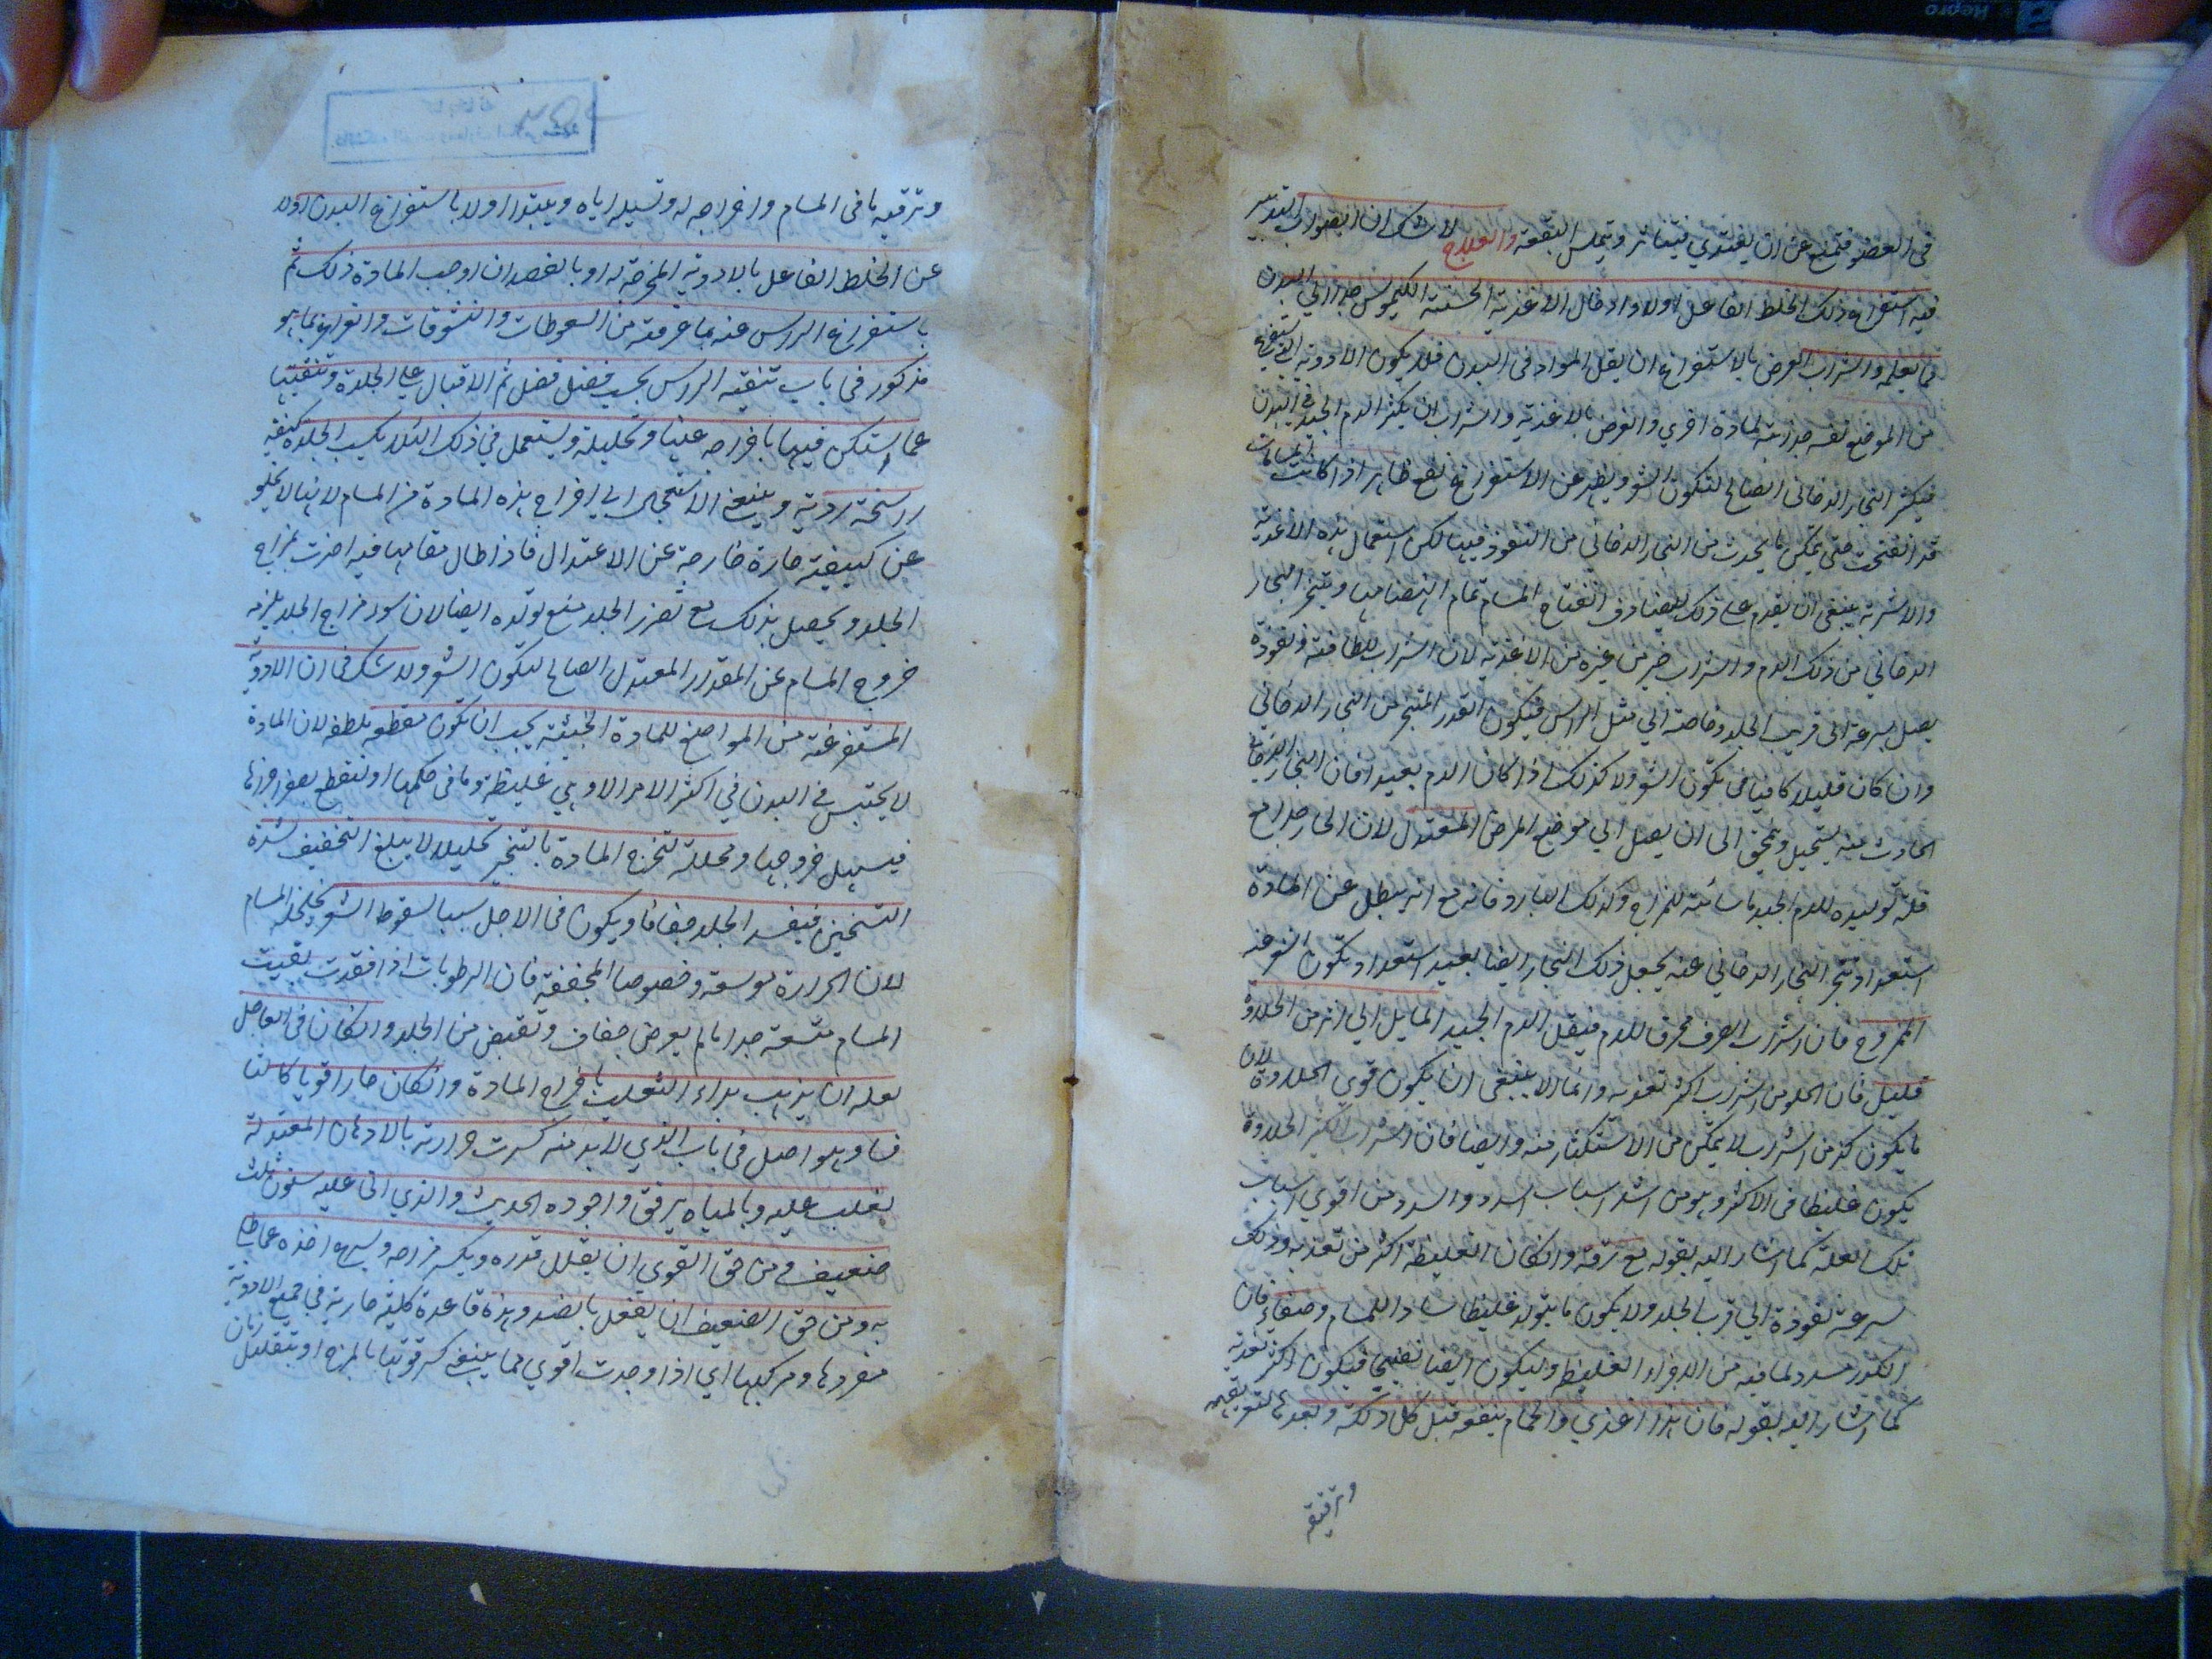 فى العضو فتمنع عن ان يغتذي فيتناثر ويتملس البقعة والعلاج لا شك ان الصواب التدبير
فيه استفراغ ذلك الخلط الفاعل اولا وادخال الاغذية الحسنة الكيموس جدا الى البدن
فما يعلمه والشراب الغرض بالاستفراغ ان يقل المواد فى البدن فلا يكون الادوية التي يستفرغ
من الموضع نفسه جذابة لمادة اخري والغرض بالاغذية والشراب ان يكثر الدم الجيد في البدن
فيكثر البخار الدخانى الصالح لتكون الشعر ويظهر عن الاستفراغ نفع ظاهر اذا كانت المسامات
قد انفتحت حتى يمكن ما يحدث من البخار الدخانى من النفوذ فيها لكن استعمال هذه الاغذية
والاشربة ينبغى ان يقدم على ذلك ليصادف انفتاح المسام تمام انهضامها ويتبخر البخار
الدخاني من ذلك الدم والشراب خير من غيره من الاغذية لان الشراب للطافته ونفوذه
يصل بسرعة الى قريب الجلد وخاصة الي مثل الراس فيكون القدر المتبخر من البخار الدخاني
وان كان قليلا كافيا فى تكون الشعر ولا كذلك اذا كان الدم بعيدا فان البخار الدخانى
الحادث عنه يستحيل ويمحق الى ان يصل الي موضع المرض المعتدل لان الحار جدا مع
قلة توليده للدم الجيد ماسائة للمزاج وكذلك البارد فانه مع انه يبطل عن المادة
استعداد تبخر البخار الدخاني عنه يجعل ذلك البخار ايضا بعيد استعداد تكون الشعر عنه
الممزوج فان الشراب الصرف محرق للدم فيقل الدم الجيد المايل الي اثر من الحلاوة
قليل فان الحلو من الشراب اكثر تغذيه وانما لا ينبغى ان يكون قوي الحلاوة لان
ما يكون كذ من الشراب لا يمكن من الاستكثار منه وايضا فان الشراب الكثير الحلاوة
يكون غليظا فى الاكثر وهو من اشد اسباب السدد والسدد من اقوي اسباب
تلك العلة كما اشار اليه بقوله مع رقة وان كان الغليظة اكثر من تغذيه وذلك
سرعة نفوذه الي قرب الجلد ولا يكون ما يتولد غليظا سادا للمسام وصفاء فان
الكدر مسدد لما فيه من الاجزاء الغليظ وليكون ايضا نضيجا فيكون اكثر تغذية
كما اشار اليه بقوله فان هذا اغذي والحمام ينفع قبل كل دلك وبعدها لتوسيعه
وترقيقه
وترقيه ما فى المسام واخراجه له وتسيله اياه ويبتدا اولا باستفراغ البدن اولا
عن الخلط الفاعل بالادوية المخرجة له او بالفصد ان اوجب المادة ذلك ثم
باستفراغ الراس عنه بما عرفته من السعوطات والنشوقات والغراغر بما هو
مذكور فى باب تنقيه الراس بحسب فضل فضل ثم الاقبال على الجلدة وتنقيتها
عما استكن فيها باخراجه عنها وتحليله ويستعمل في ذلك لئلا يكسب الجلدة كيفية
راسخة ردية وينبغى الاستعجال الي اخراج هذه المادة من المسام لانها لا تخلو
عن كيفية حارة خارجة عن الاعتدال فاذا طال مقامها فيه اضرت بمزاج
الجلد ويحصل بذلك مع تضرر الجلد منع تولده ايضا لان سوء مزاج الجلد يلزمه
خروج المسام عن المقدار المعتدل الصالح لتكون الشعر ولا شك فى ان الادوية
المستفرغة من المواضع للمادة الخبيثة يجب ان تكون مقطعه ملطفه لان المادة
لا يحتبس في البدن في اكثر الامر الا وهي غليظة وما فى حكمها او لتقطع بعض اجزائها
فيسهل خروجها ومحللة لتخرج المادة بالتبخير تحليلا لا يبلغ التجفيف لشدة
التسخين فيفسد الجلد جفافا ويكون فى الاجل سببا لسقوط الشعر بتخلخل المسام
لان الحرارة موسعة وخصوصا المجففة فان الرطوبات اذا فقدت بقيت
المسام متسعة جدا ما لم يعرض جفاف وتقبض من الجلد وان كان فى العاجل
لعله ان يذهب بداء الثعلب باخراج المادة وان كان حارا قويا كالثا
فسا وهو اصل فى باب الذي لا بد منه كسرت حرارته بالادهان المعتدلة
يغلب عليه وبالمياه يرقق واجوده الحديث والذي اتى عليه سنون ثلث
ضعيف ومن حق القوي ان يقلل قدره ويكسر مزاجه ويسرع اخذه عما طلي
به ومن حق الضعيف ان يفعل بالضد وهذه قاعدة كلية جارية في جميع الادوية
مفردها ومركبها اي اذا وجدت اقوي مما ينبغى كسر قوتها بالمزج او بتقليل زمان